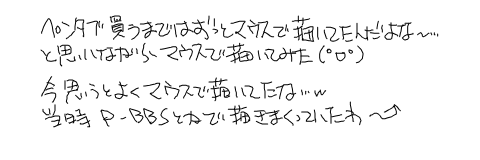 ペンタブ買うまではずっとマウスで描いてたんだよな～…
と思いながらマウスで描いてみた(°ロ°)
今思うとよくマウスで描いてたな…w
当時P-BBSとかで描きまくっていたわ～↗